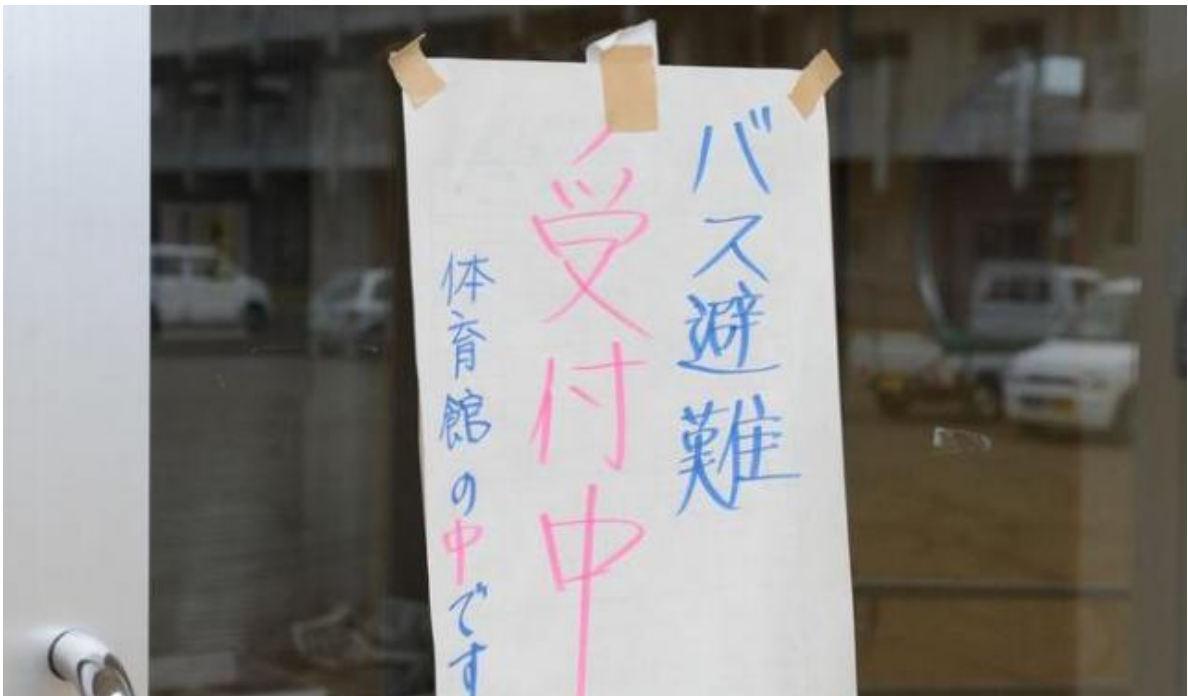 バス避難
受付中
体育館の中です